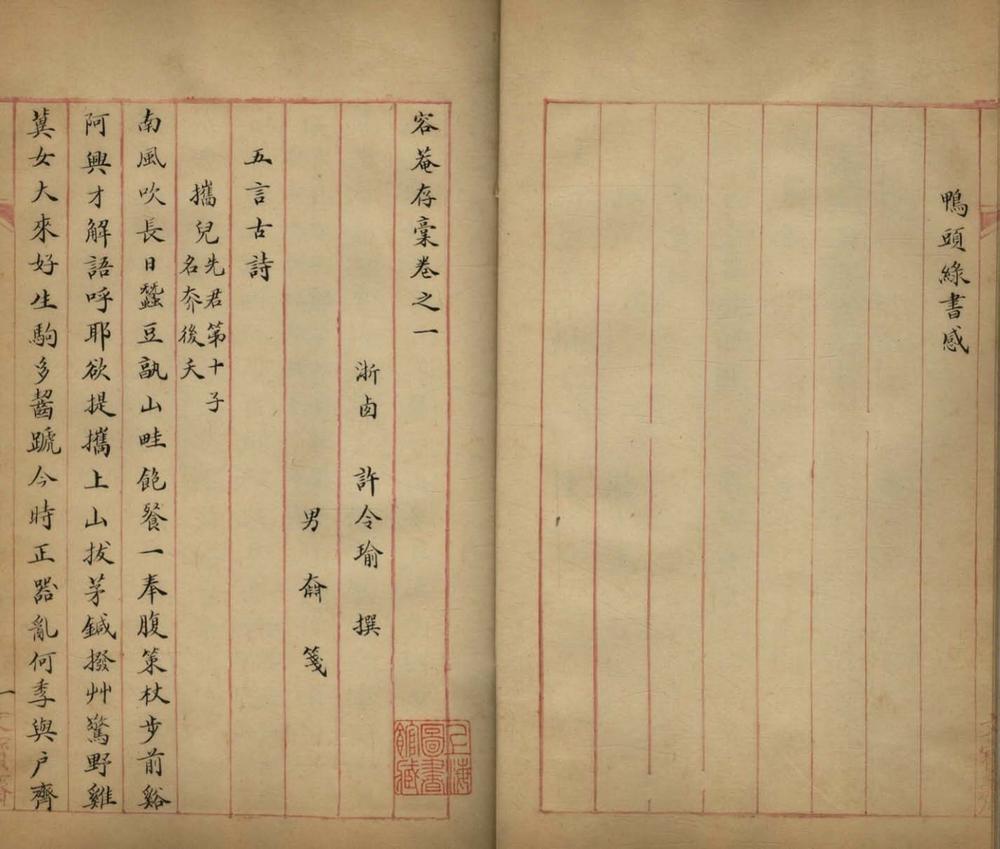 鴨頭綠書感
容菴存稾卷之一
浙卤 許令瑜 撰
男 奟 箋
五言古詩
攜兒先君第十子
名奈後夭
南風吹長日蠶豆孰山畦飽餐一奉腹策杖步前谿
阿興才解語呼耶欲提攜上山拔茅鍼撥艸驚野雞
蕒女大來好生駒多齧蹏今時正嚣亂何季與戶齊
上海圖書館藏
一